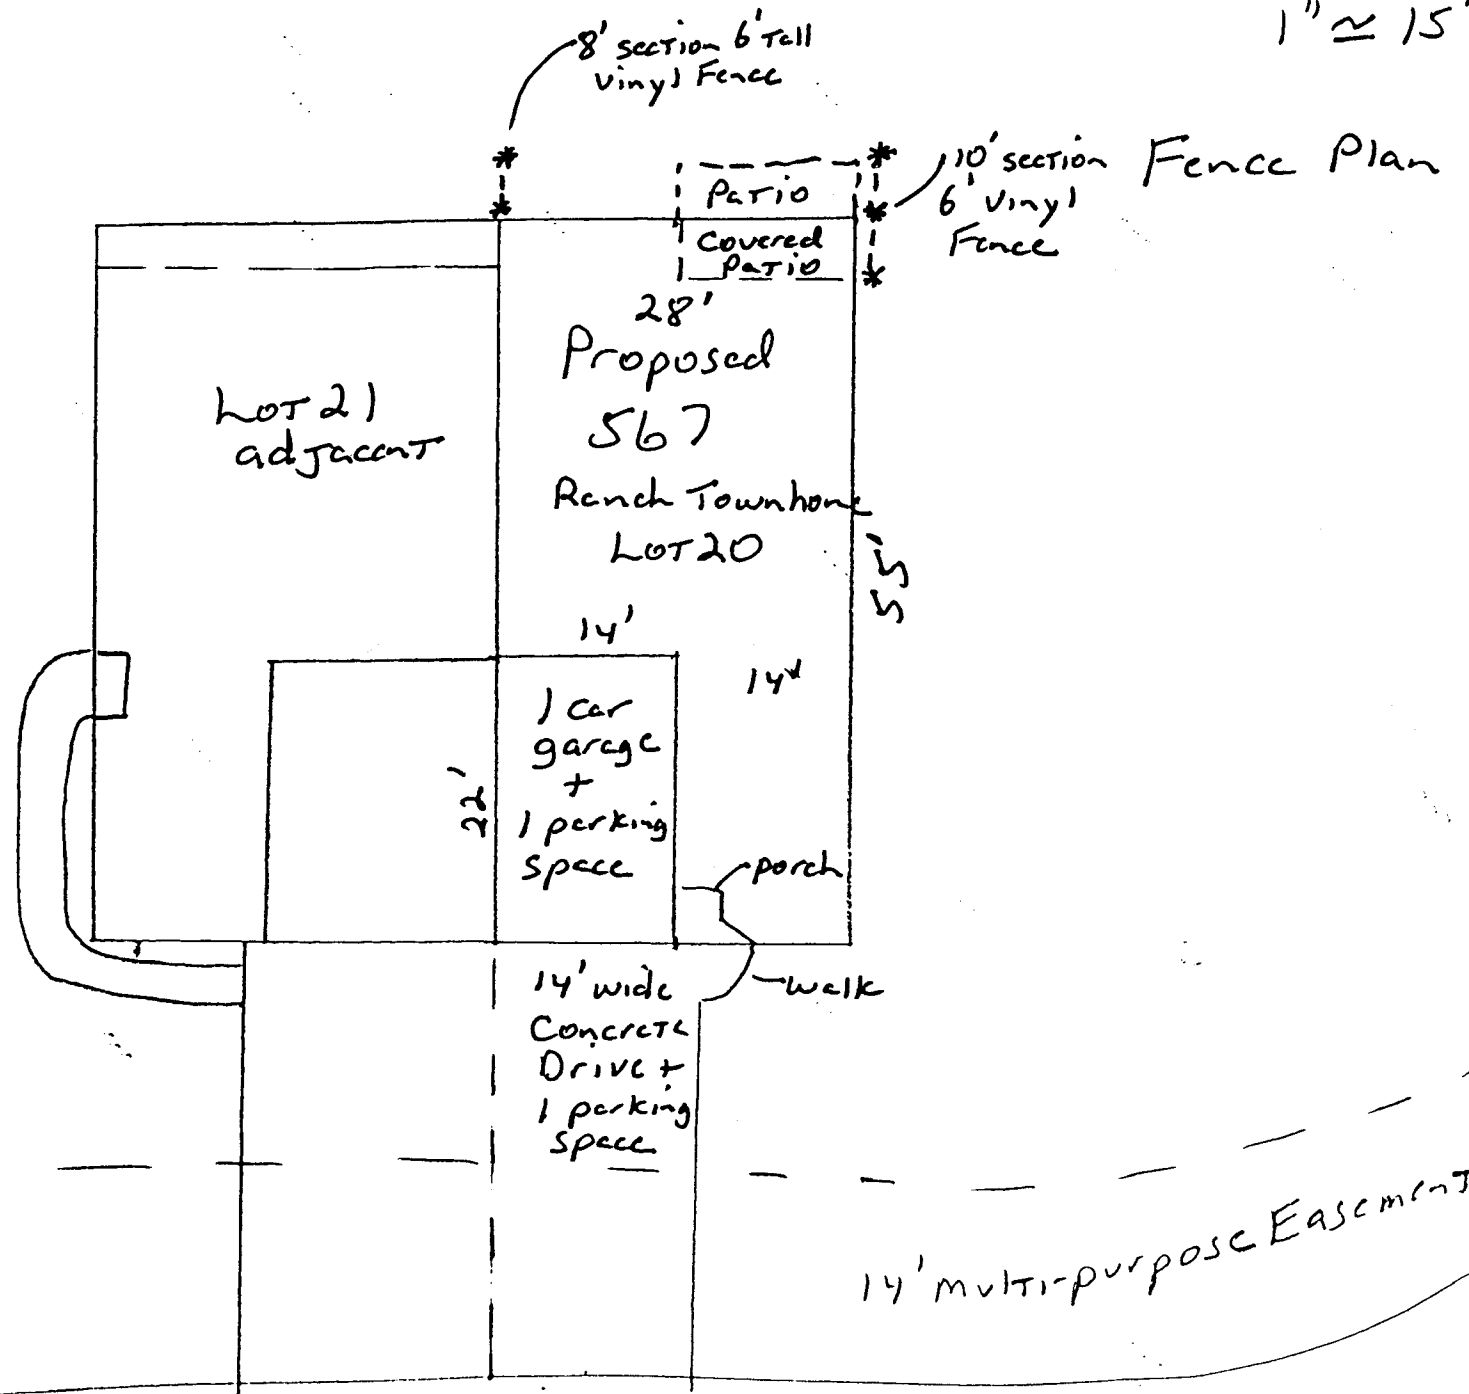 1" ≃ 15'
8' section 6' Tall
Vinyl Fence
Fence Plan
10' section
6' Vinyl
Fence
Patio
Covered
Patio
28'
Proposed
567
Ranch Townhome
Lot 20
Lot 21
adjacent
55'
14'
14'
1 car
garage
+
1 parking
space
22'
porch
walk
14' wide
Concrete
Drive +
1 parking
space
14' Multi-purpose Easement